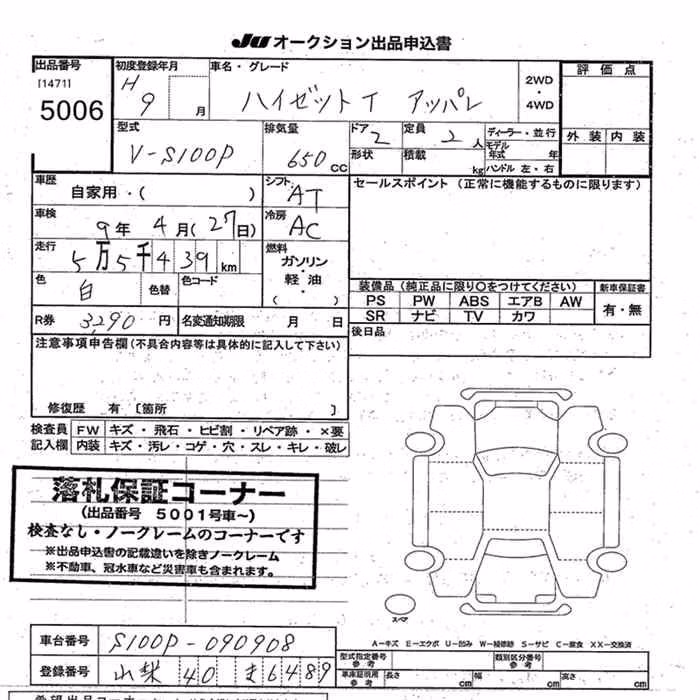 JU オークション出品申込書
出品番号
[1471]
5006
初度登録年月
H
9 月
車名・グレード
ハイゼットT アッパレ
2WD
・
4WD
評価点
外装 内装
型式
V-S100P
排気量
650 CC
ドア
2
定員
2 人
形状
積載
kg
ディーラー・並行
モデル
年式 年
ハンドル 左・右
車歴
自家用・( )
シフト
AT
セールスポイント (正常に機能するものに限ります)
車検
9年 4月(27日)
冷房
AC
走行
5万5千439 km
燃料
ガソリン
・
軽油
( )
色
白
色替
色コード
R券 3290 円
名変通知期限 月 日
装備品 (純正品に限り○をつけてください) 新車保証書
PS PW ABS エアB AW
SR ナビ TV カワ
有・無
後日品
注意事項申告欄(不具合内容等は具体的に記入して下さい)
修復歴 有 〔箇所 〕
検査員 FW キズ・飛石・ヒビ割・リペア跡・×要
記入欄 内装 キズ・汚レ・コゲ・穴・スレ・キレ・破レ
落札保証コーナー
(出品番号 5001号車~)
検査なし・ノークレームのコーナーです
※出品申込書の記載違いを除きノークレーム
※不動車、冠水車など災害車も含まれます。
スペア
A－キズ E－エクボ U－凹み W－補修跡 S－サビ C－腐食 XX－交換済
車台番号 S100P-090908
登録番号 山梨 40 ま 6489
型式指定番号
参考
類別区分番号
参考
車庫証明用
参考
長さ cm 幅 cm 高さ cm